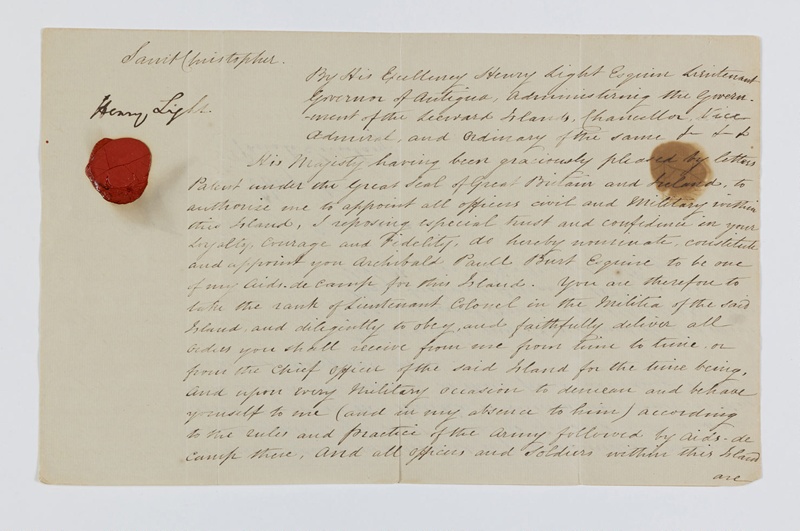 Saint Christopher.
Henry Light.
By His Excellency Henry Light Esquire Lieutenant
Governor of Antigua, Administering the Govern-
-ment of the Leeward Islands, Chancellor, Vice
Admiral, and Ordinary of the same & & &
His Majesty having been graciously pleased by letters
Patent under the Great Seal of Great Britain and Ireland, to
authorise me to appoint all officers civil and Military within
this Island, I reposing especial trust and confidence in your
Loyalty, Courage and Fidelity, do hereby nominate, constitute
and appoint you Archibald Paull Burt Esquire to be one
of my Aids-de Camp for this Island. You are therefore to
take the rank of Lieutenant Colonel in the Militia of the said
Island and diligently to obey, and faithfully deliver all
orders you shall receive from me from time to time or
from the Chief Officer of the said Island for the time being,
And upon every Military occasion to demean and behave
yourself to me (and in my absence to him) according
to the rules and practice of the Army followed by aids-de
Camp there, And all officers and Soldiers within this Island
are